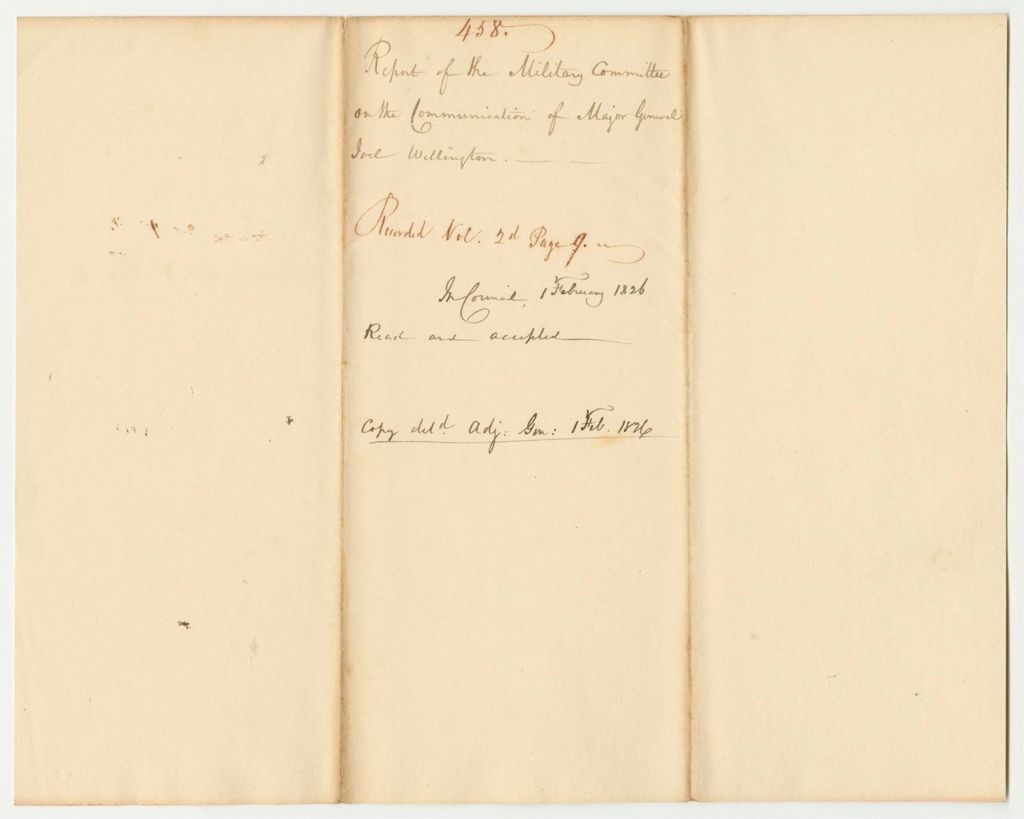 458.
Report of the Military Committee
on the Communication of Major General
Joel Wellington.
Recorded Vol. 2d Page 9.
In Council, 1 February 1826
Read and accepted
Copy deld. Adj: Gen: 1 Feb. 1826